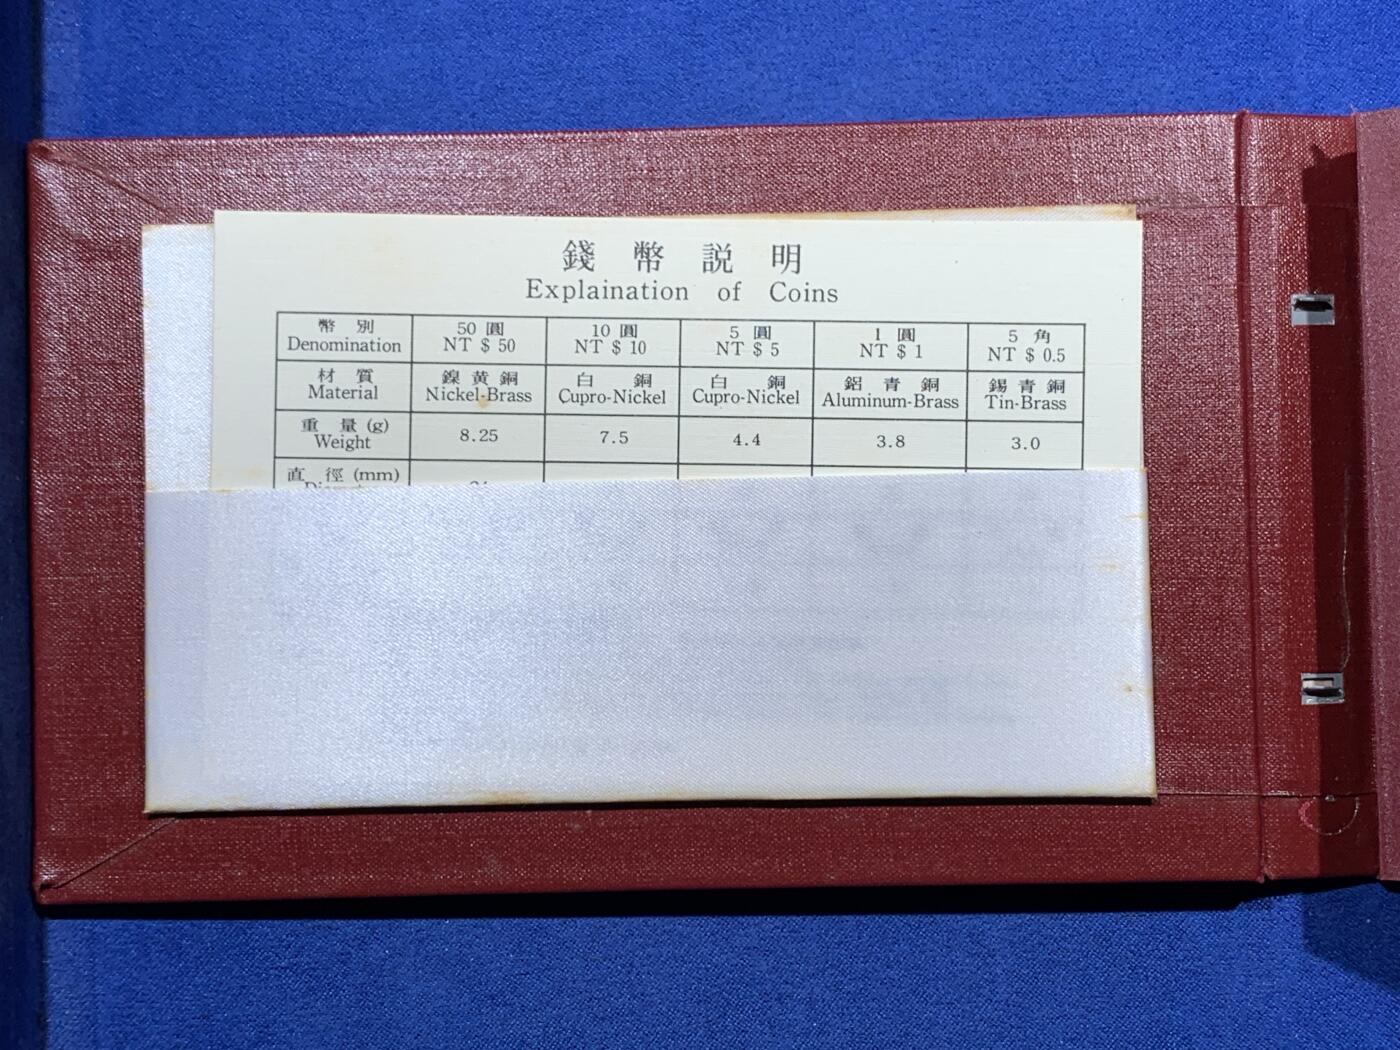 錢幣説明
Explaination of Coins
幣別 50圓 10圓 5圓 1圓 5角
Denomination NT $ 50 NT $ 10 NT $ 5 NT $ 1 NT $ 0.5
材質 鎳黃銅 白銅 白銅 鋁青銅 錫青銅
Material Nickel-Brass Cupro-Nickel Cupro-Nickel Aluminum-Brass Tin-Brass
重量(g) 8.25 7.5 4.4 3.8 3.0
Weight
直徑(mm)